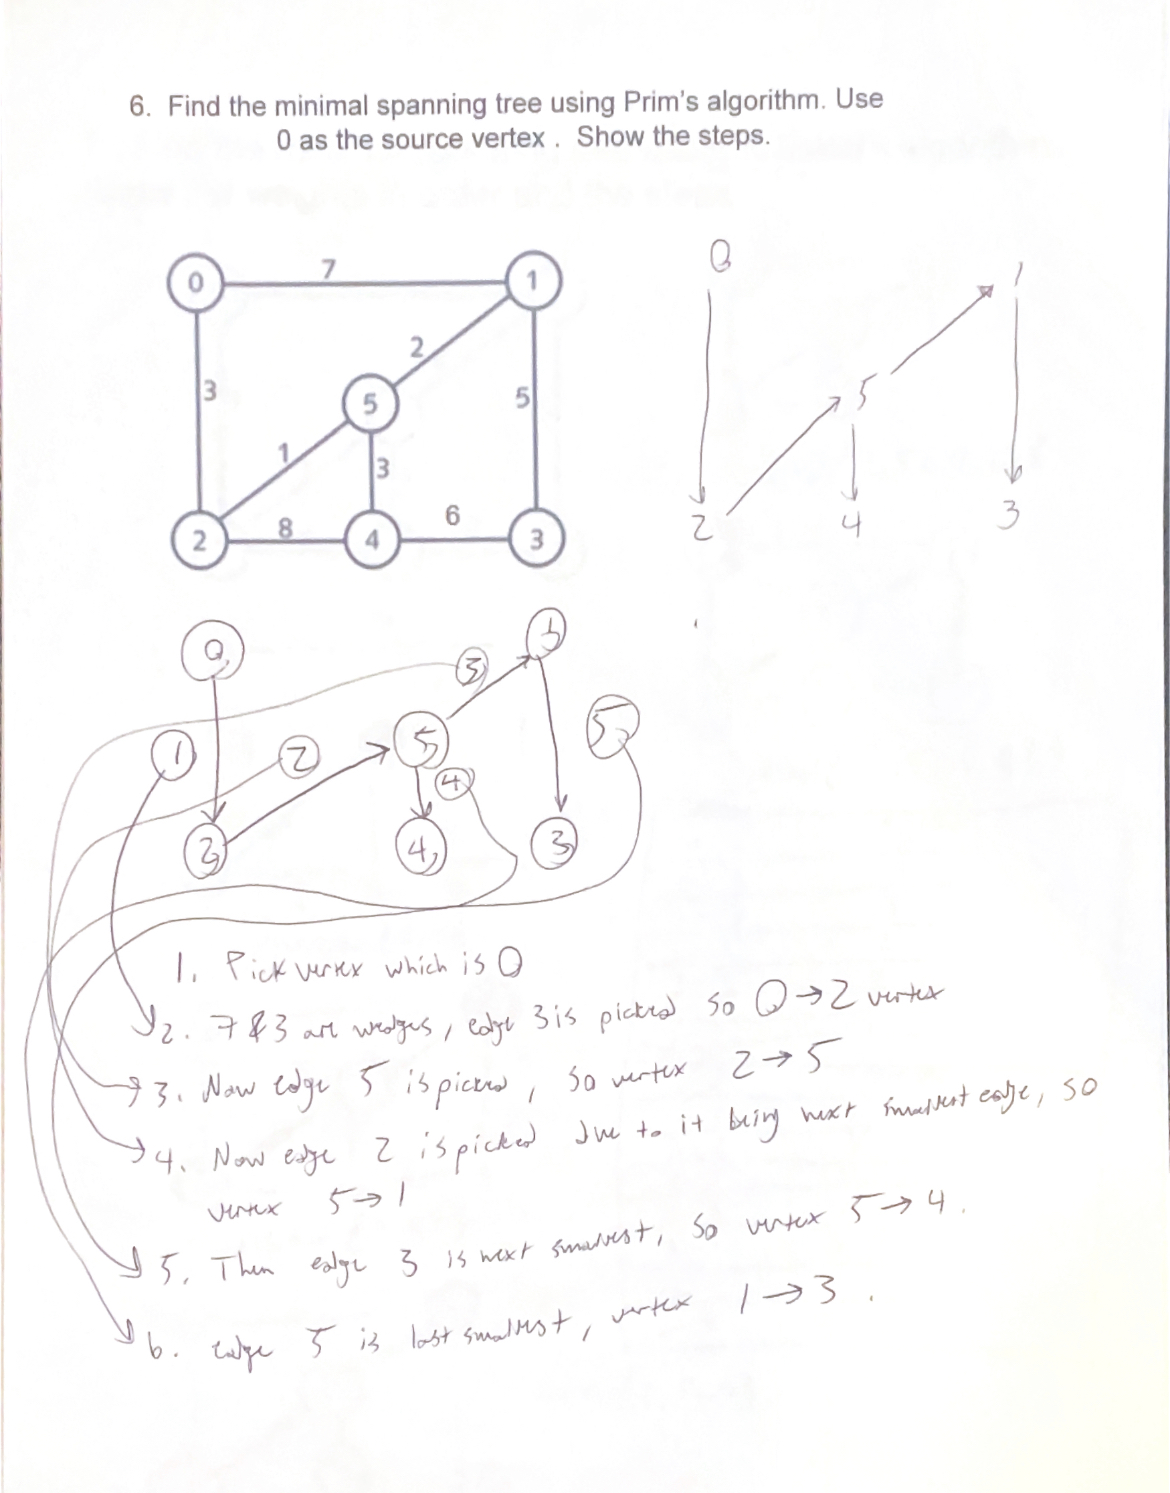 6. Find the minimal spanning tree using Prim's algorithm. Use
0 as the source vertex . Show the steps.
0 7 1
2
3 5 5
1 3
2 8 4 6 3
0 1
5
2 4 3
0 3 1
1 2 5 5
4
2 4 3
1. Pick vertex which is 0
2. 7 & 3 are wedges, edge 3 is picked so 0→2 vertex
3. Now edge 5 is picked, so vertex 2→5
4. Now edge 2 is picked due to it being next smallest edge, so
vertex 5→1
5. Then edge 3 is next smallest, so vertex 5→4.
6. edge 5 is last smallest, vertex 1→3.